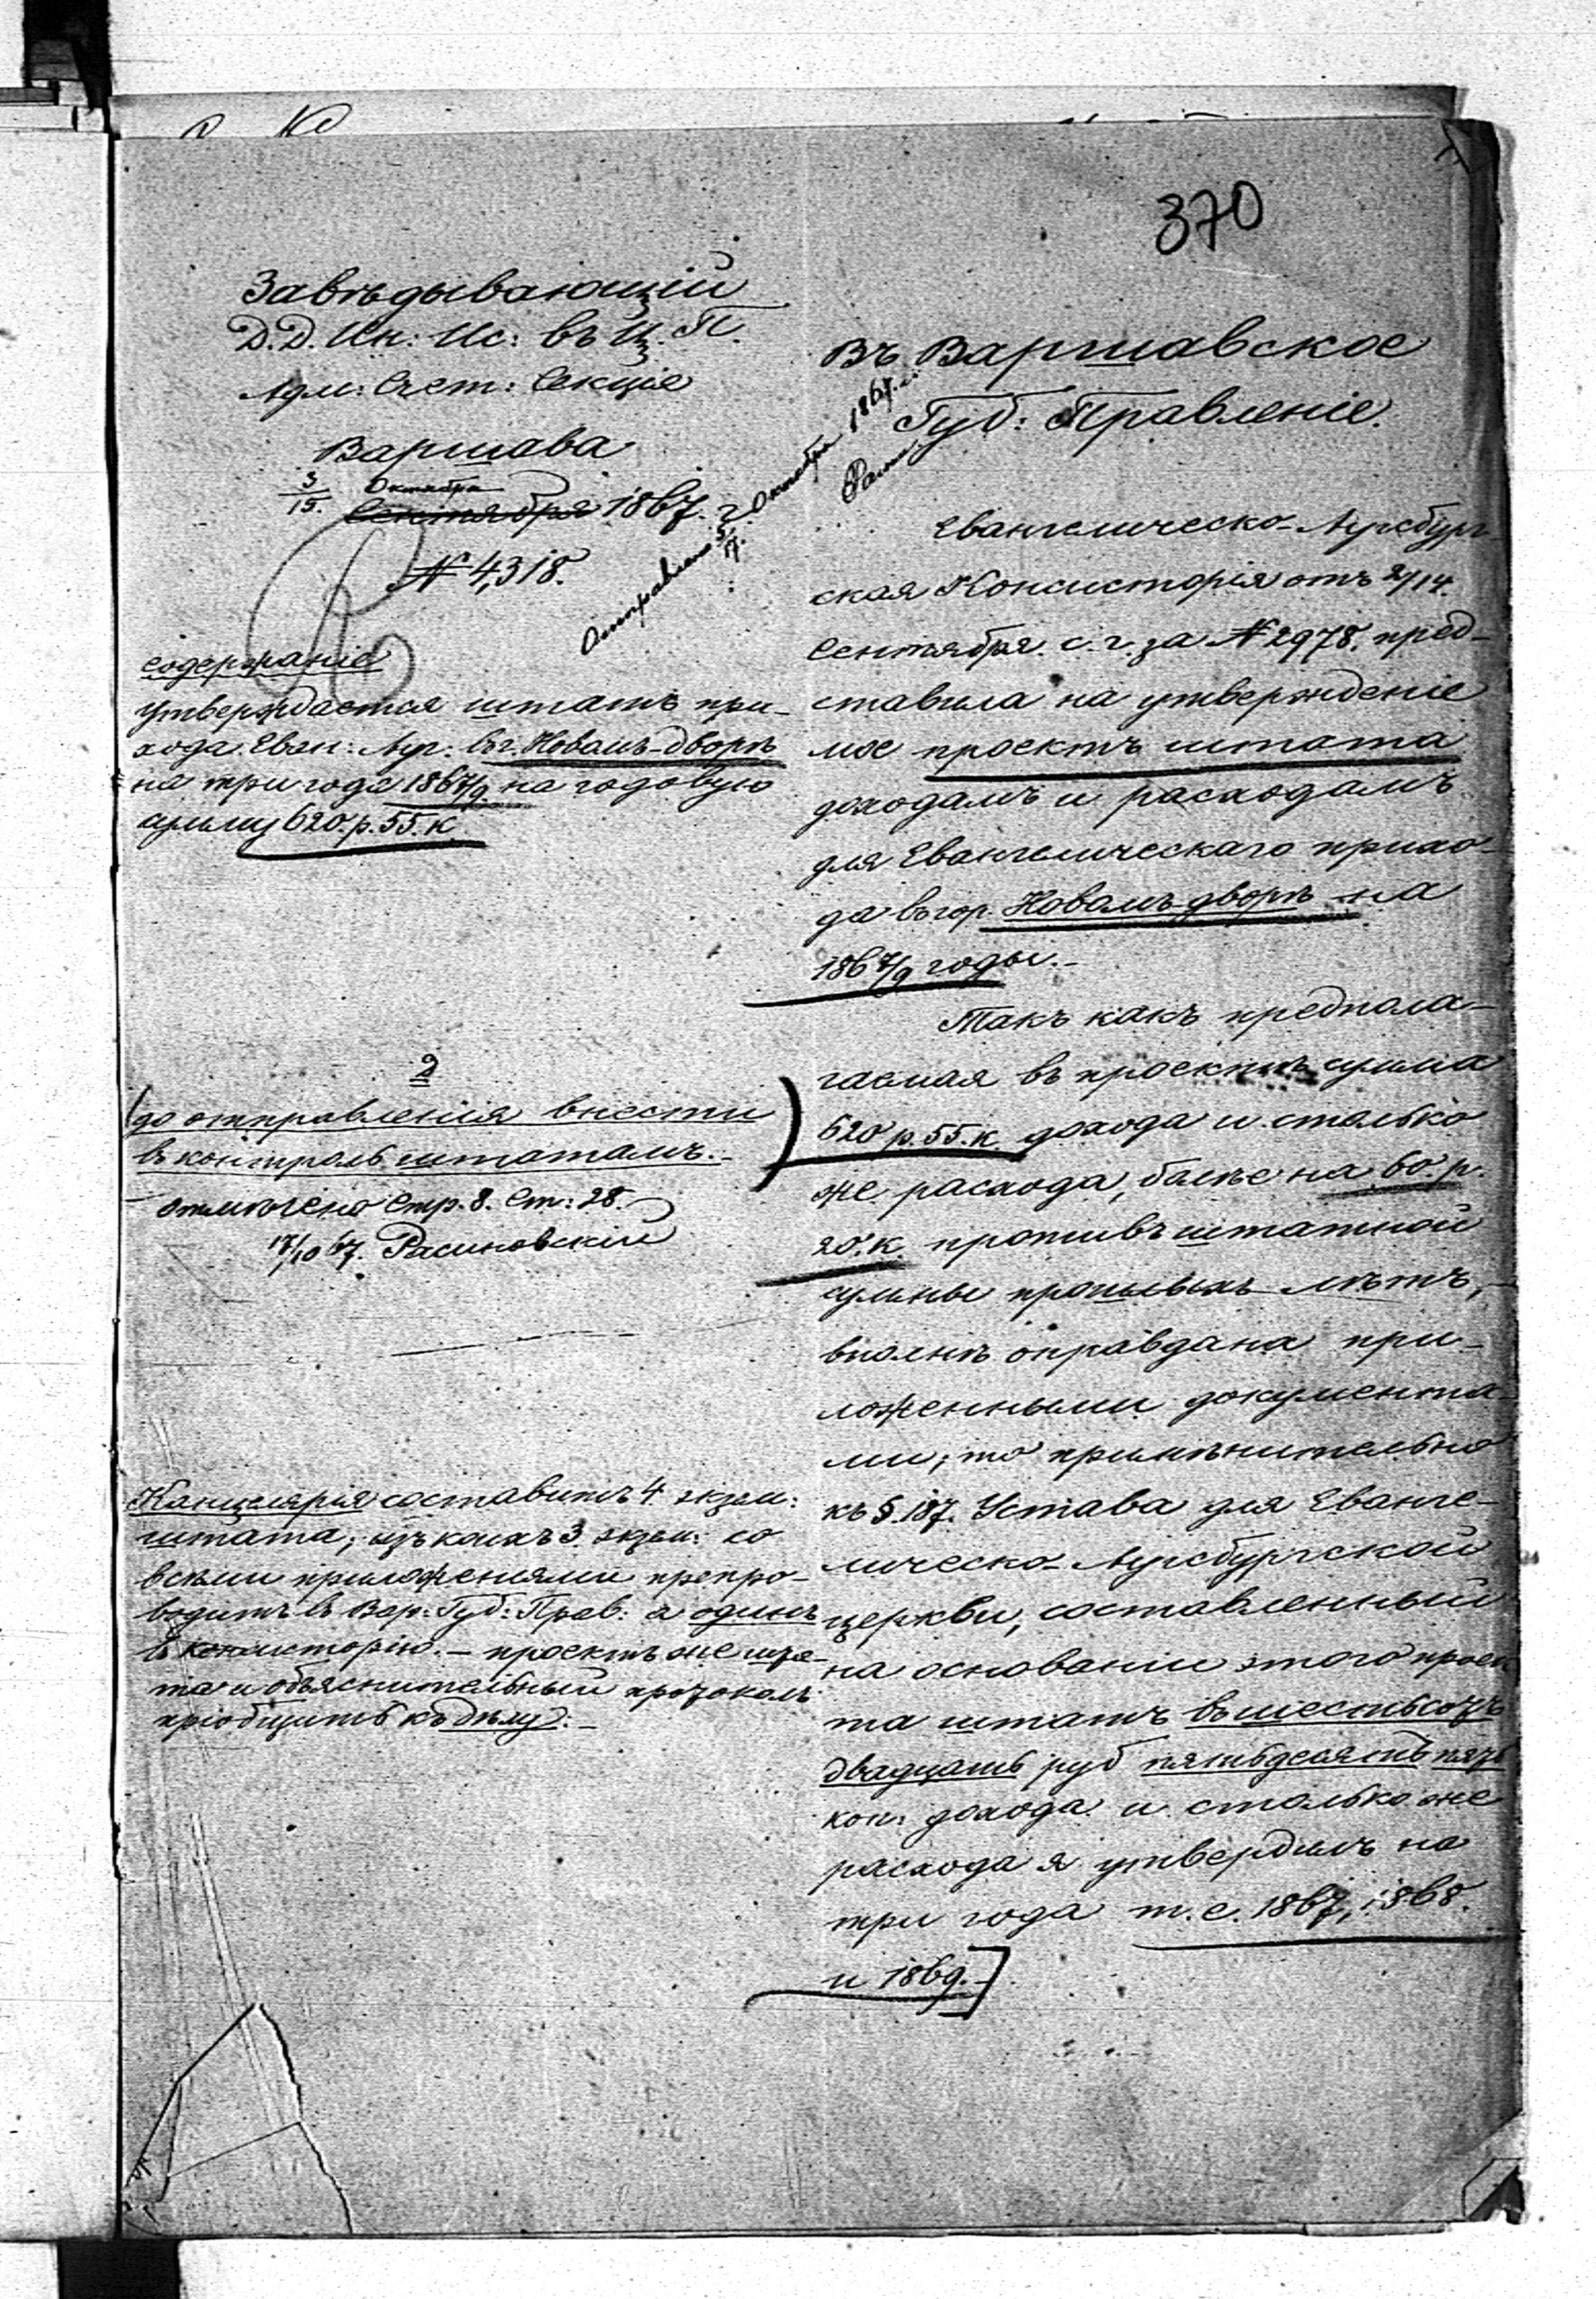 370
Завѣдывающій
Д.Д. Ин: Ис: въ Ц. П.
Адм: Счет: Секція
Варшава
3/15. Октября
Сентября 1867. г.
№ 4,318.
Отправлено 5/17. Октября 1867. г.
содержаніе
утверждается штатъ при-
хода Еван: Ауг: въ г. Новомъ-дворѣ
на три года 1867/9 на годовую
сумму 620. р. 55. к.
2
до отправленія внести
въ контроль штатамъ.-
отмѣчено стр. 8. ст: 28.
17/10 67. Расиновскій
Канцелярія составитъ 4 экзем:
штата; изъ коихъ 3. экзем: со
всѣми приложеніями препро-
водитъ въ Вар: Губ: Прав: а одинъ
въ консисторію. - проектъ же шта-
та и объяснительный протоколъ
пріобщить къ дѣлу.-
Въ Варшавское
Губ: Правленіе.
Евангелическо-Аугсбург
ская Консисторія отъ 2/14.
Сентября. с. г. за № 2978. пред-
ставила на утвержденіе
мое проектъ штата
доходамъ и расходамъ
для Евангелическаго прихо-
да въ гор. Новомъ-дворѣ на
1867/9 годы.-
Такъ какъ предпола-
гаемая въ проектѣ сумма
620 р. 55. к. дохода и столько
же расхода, болѣе на 60 р.
20. к. противъ штатной
суммы прошлыхъ лѣтъ,-
вполнѣ оправдана при-
ложенными документа-
ми; то примѣнительно
къ §. 187. Устава для Еванге-
лическо-Аугсбургской
церкви, составленный
на основаніи этого проек
та штатъ въ шестьсотъ
двадцать руб пятьдесятъ пять
коп: дохода и столько же
расхода я утвердилъ на
три года т. е. 1867, 1868.
и 1869.-